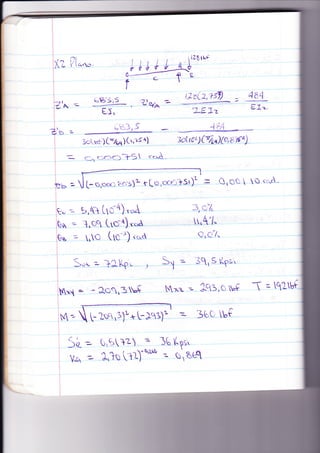 XZ Plano
128 lbf
A
C
B
Z'A = 683,5 / EI1 , Z'B/A = 128(2,75²) / 2EI2 = 484 / EI2
Z'B = 683,5 / 30(10⁶)(π/64)(1,25⁴) - 484 / 30(10⁶)(π/64)(0,875⁴)
= 0,000751 rad
θB = √(-0,000803)² + (0,000751)² = 0,00110 rad.
θC = 5,47 (10⁻⁴) rad 3,0%
θA = 7,09 (10⁻⁴) rad 11,4%
θB = 1,10 (10⁻³) rad 0,0%
Sut = 72 Kpsi , Sy = 39,5 Kpsi
Mxy = - 209,3 lbf Mxz = 293,0 lbf T = 192 lbf
M = √(-209,3)² + (-293)² = 360 lbf
Se' = 0,5(72) = 36 Kpsi
Ka = 2,70 (72)⁻⁰·²⁶⁵ = 0,869